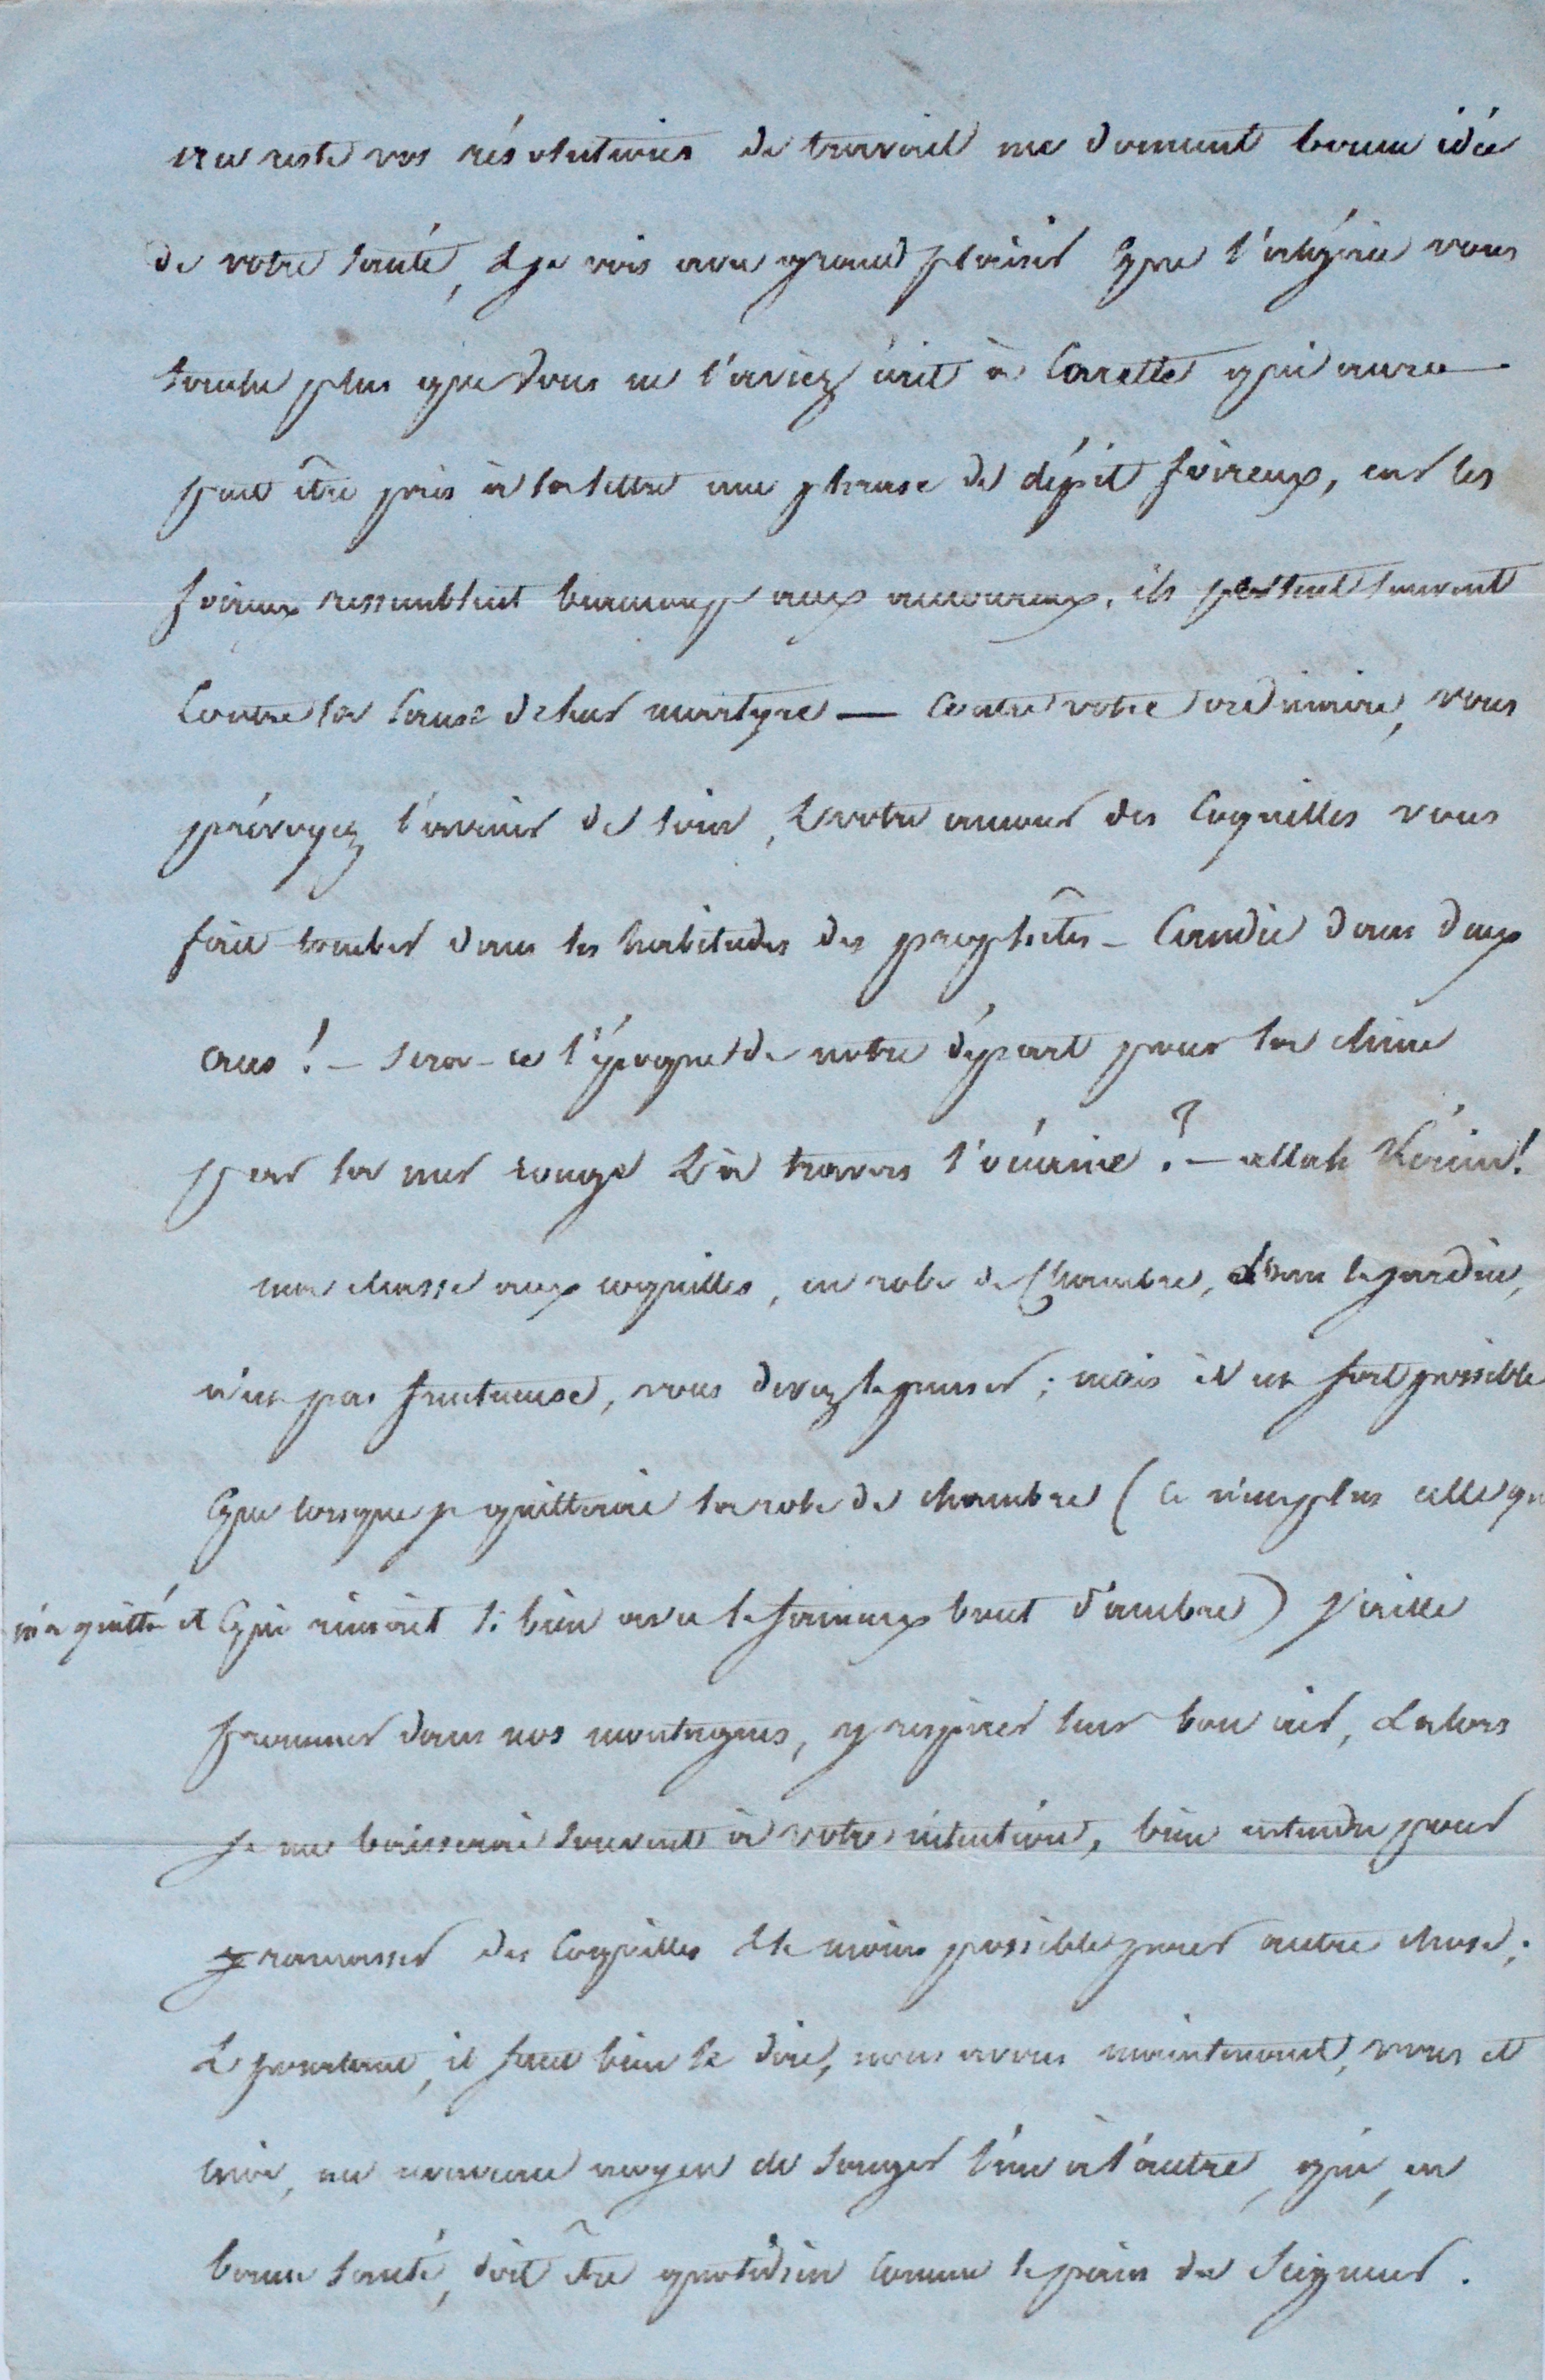 au reste vos résolutions de travail me donnent bonne idée
de votre santé, & je vois avec grand plaisir que l'algérie vous
touche plus que vous ne l'aviez écrit à Carette qui aura
peut être pris à la lettre une phrase de dépit foireux, car les
foireux ressemblent beaucoup aux amoureux, ils pestent souvent
contre la cause de leur martyre — Contre votre ordinaire, vous
prévoyez l'avenir de loin, & votre amour des coquilles vous
fait tomber dans les habitudes des prophêtes – Candie dans deux
ans ! – sera-ce l'époque de notre départ pour la chine
par la mer rouge & à travers l'océanie ? – allah Kérim !
ma chasse aux coquilles, en robe de chambre, dans le jardin,
n'est pas fructueuse, vous devez le penser ; mais il est fort possible
que lorsque je quitterai la robe de chambre (ce n'est plus celle qui
m'a quitté et qui rimait si bien avec le fameux bout d'ambre) j'aille
promener dans nos montagnes, y respirer leur bon air, & alors
je me baisserai souvent à votre intention, bien entendu pour
ramasser des coquilles & le moins possible pour autre chose ;
& pourtant, il faut bien le dire, nous avons maintenant, vous et
moi, un nouveau moyen de songer l'un à l'autre, qui, en
bonne santé, doit être quotidien comme le pain du Seigneur.